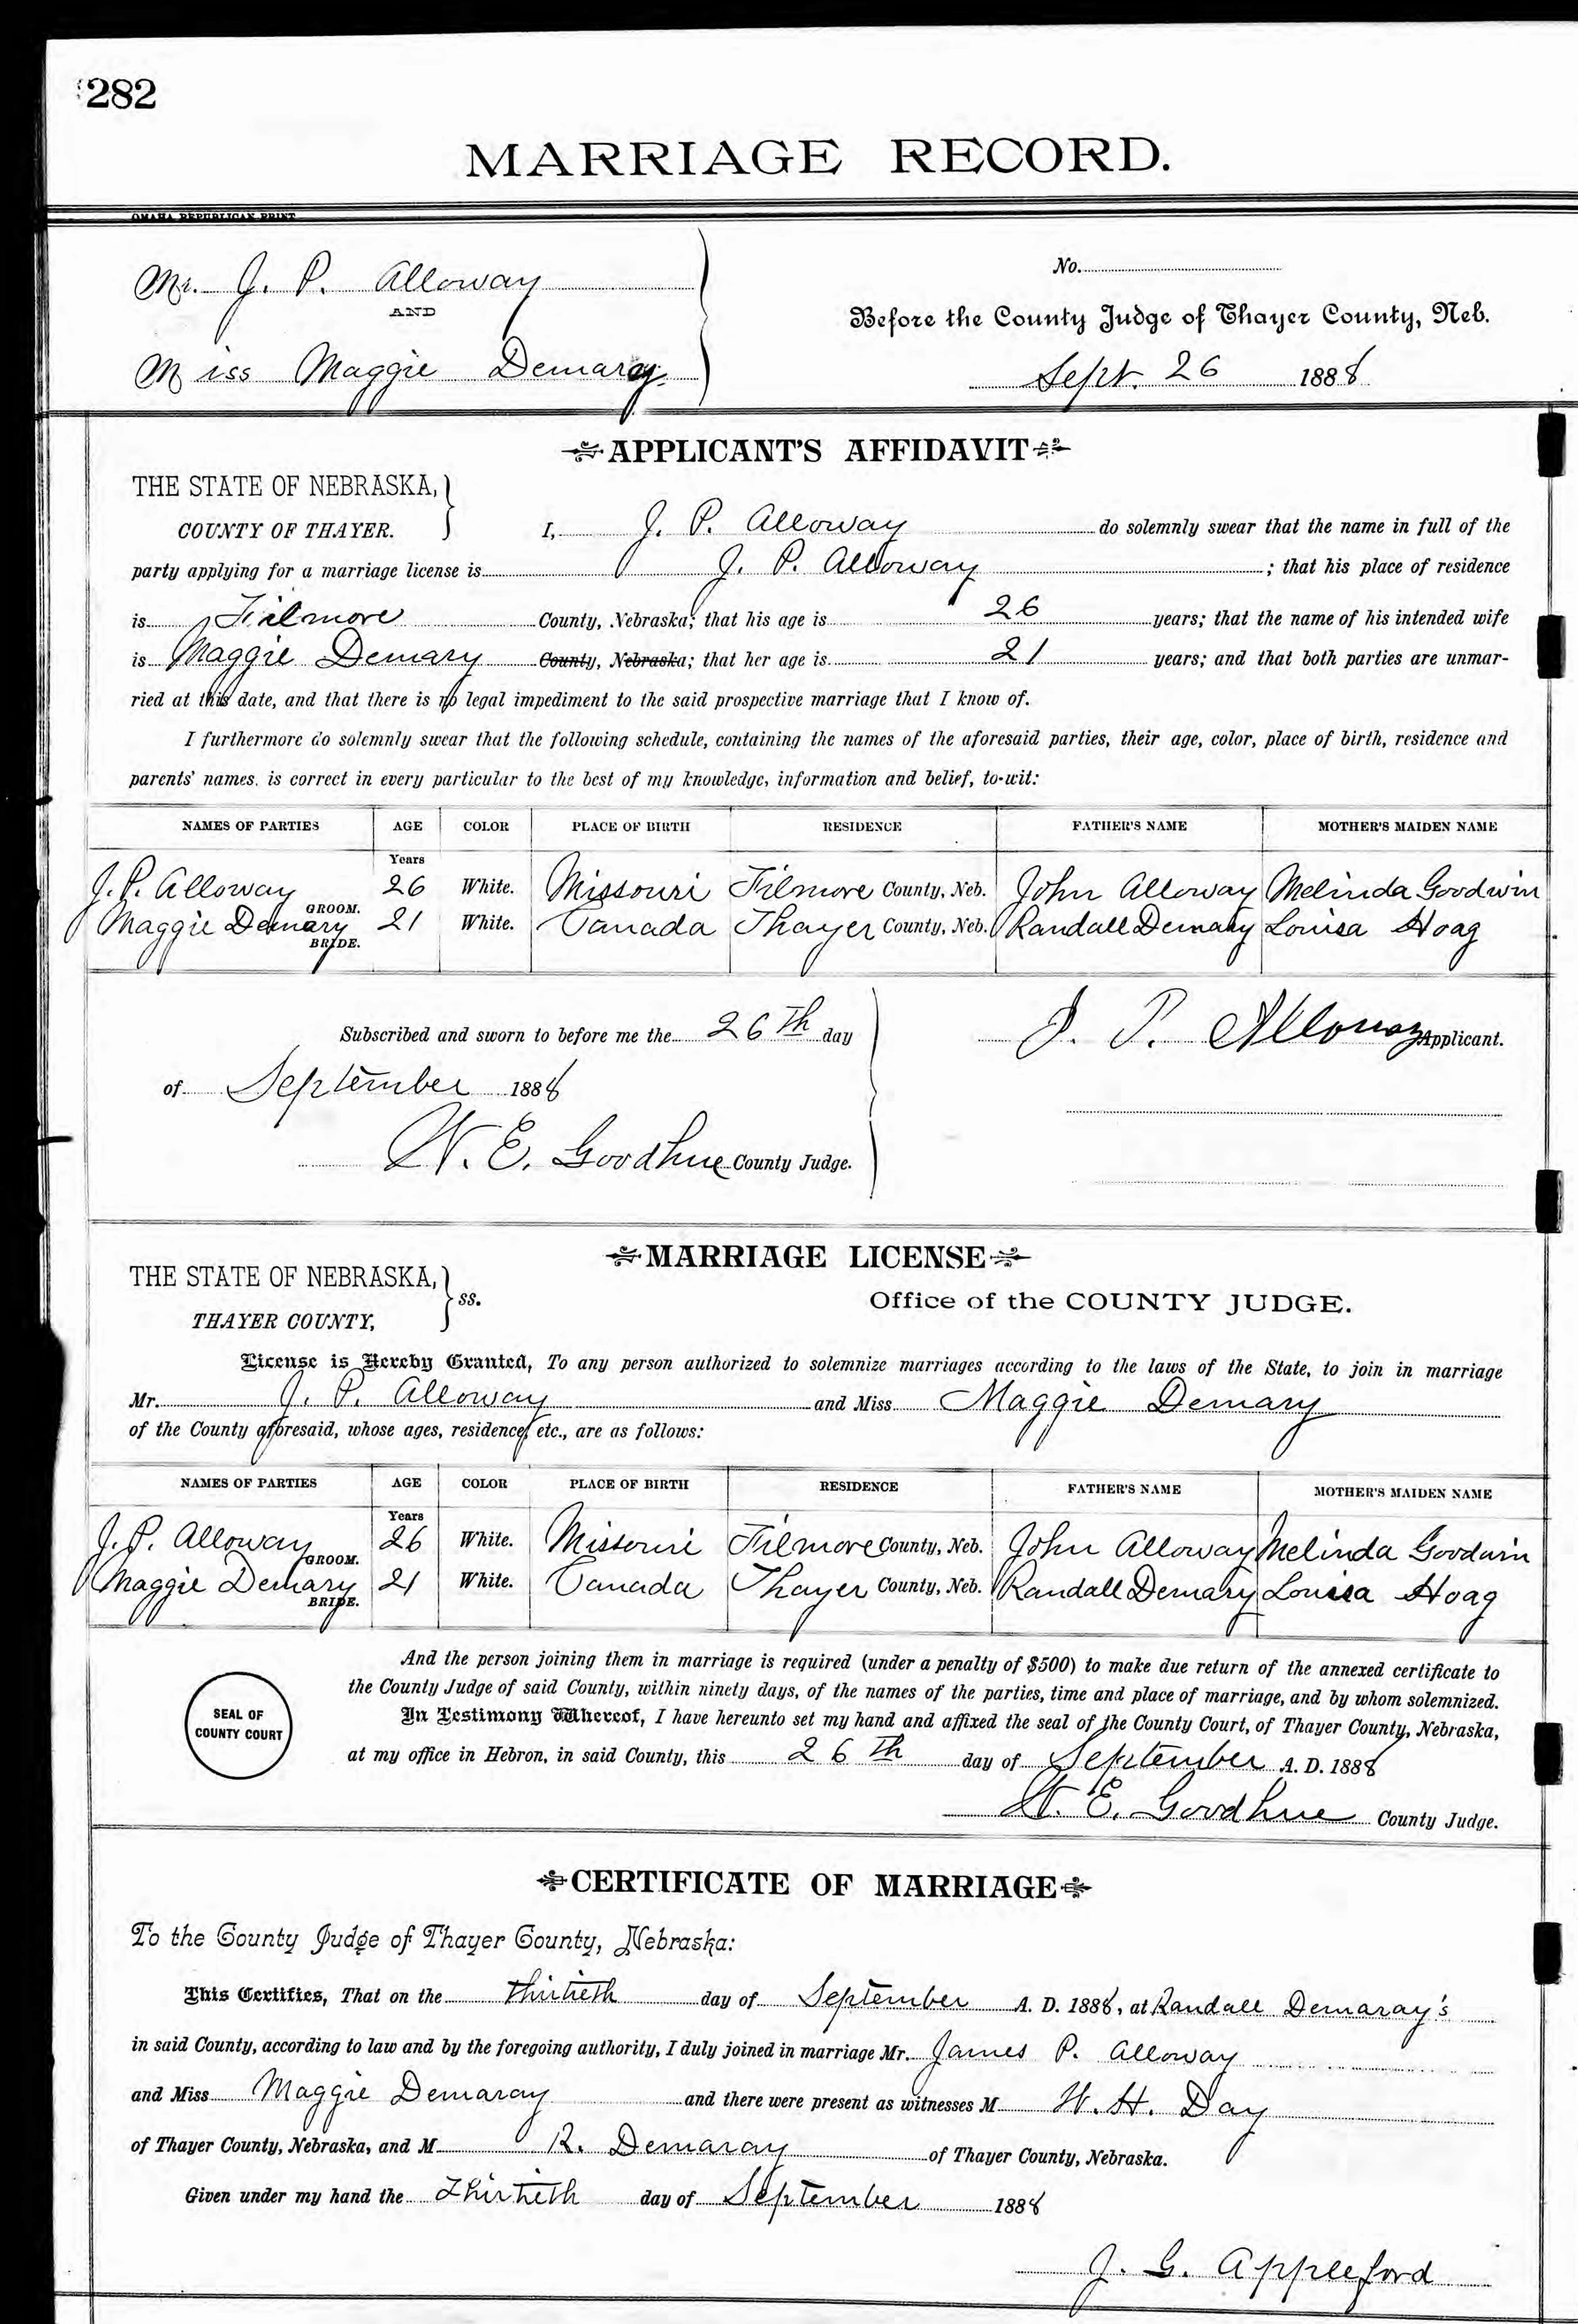 282
MARRIAGE RECORD.
OMAHA REPUBLICAN PRINT
Mr. J. P. Alloway
AND
Miss Maggie Demaray
No.
Before the County Judge of Thayer County, Neb.
Sept. 26 1888
APPLICANT'S AFFIDAVIT
THE STATE OF NEBRASKA,
COUNTY OF THAYER.
I, J. P. Alloway do solemnly swear that the name in full of the
party applying for a marriage license is J. P. Alloway ; that his place of residence
is Filmore County, Nebraska; that his age is 26 years; that the name of his intended wife
is Maggie Demary County, Nebraska; that her age is 21 years; and that both parties are unmar-
ried at this date, and that there is no legal impediment to the said prospective marriage that I know of.
I furthermore do solemnly swear that the following schedule, containing the names of the aforesaid parties, their age, color, place of birth, residence and
parents' names, is correct in every particular to the best of my knowledge, information and belief, to-wit:
NAMES OF PARTIES AGE COLOR PLACE OF BIRTH RESIDENCE FATHER'S NAME MOTHER'S MAIDEN NAME
Years
J. P. Alloway GROOM. 26 White. Missouri Filmore County, Neb. John Alloway Melinda Goodwin
Maggie Demary BRIDE. 21 White. Canada Thayer County, Neb. Randall Demary Louisa Hoag
Subscribed and sworn to before me the 26th day
of September 1888
W. E. Goodhue County Judge.
J. P. Alloway Applicant.
MARRIAGE LICENSE
THE STATE OF NEBRASKA,
THAYER COUNTY,
ss.
Office of the COUNTY JUDGE.
License is Hereby Granted, To any person authorized to solemnize marriages according to the laws of the State, to join in marriage
Mr. J. P. Alloway and Miss Maggie Demary
of the County aforesaid, whose ages, residence, etc., are as follows:
NAMES OF PARTIES AGE COLOR PLACE OF BIRTH RESIDENCE FATHER'S NAME MOTHER'S MAIDEN NAME
Years
J. P. Alloway GROOM. 26 White. Missouri Filmore County, Neb. John Alloway Melinda Goodwin
Maggie Demary BRIDE. 21 White. Canada Thayer County, Neb. Randall Demary Louisa Hoag
And the person joining them in marriage is required (under a penalty of $500) to make due return of the annexed certificate to
the County Judge of said County, within ninety days, of the names of the parties, time and place of marriage, and by whom solemnized.
In Testimony Whereof, I have hereunto set my hand and affixed the seal of the County Court, of Thayer County, Nebraska,
at my office in Hebron, in said County, this 26th day of September A. D. 1888
SEAL OF
COUNTY COURT
W. E. Goodhue County Judge.
CERTIFICATE OF MARRIAGE
To the County Judge of Thayer County, Nebraska:
This Certifies, That on the thirtieth day of September A. D. 1888, at Randall Demaray's
in said County, according to law and by the foregoing authority, I duly joined in marriage Mr. James P. Alloway
and Miss Maggie Demaray and there were present as witnesses M W. H. Day
of Thayer County, Nebraska, and M R. Demaray of Thayer County, Nebraska.
Given under my hand the Thirtieth day of September 1888
J. G. Appleford